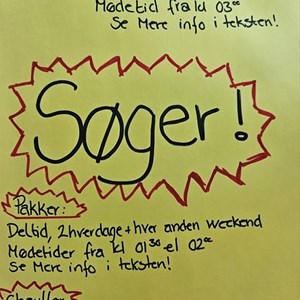 Mødetid fra kl 03⁰⁰
Se Mere info i teksten!
Søger!
Pakker:
Deltid, 2 hverdage + hver anden weekend
Mødetider fra kl 01³⁰ el 02⁰⁰
Se Mere info i teksten!